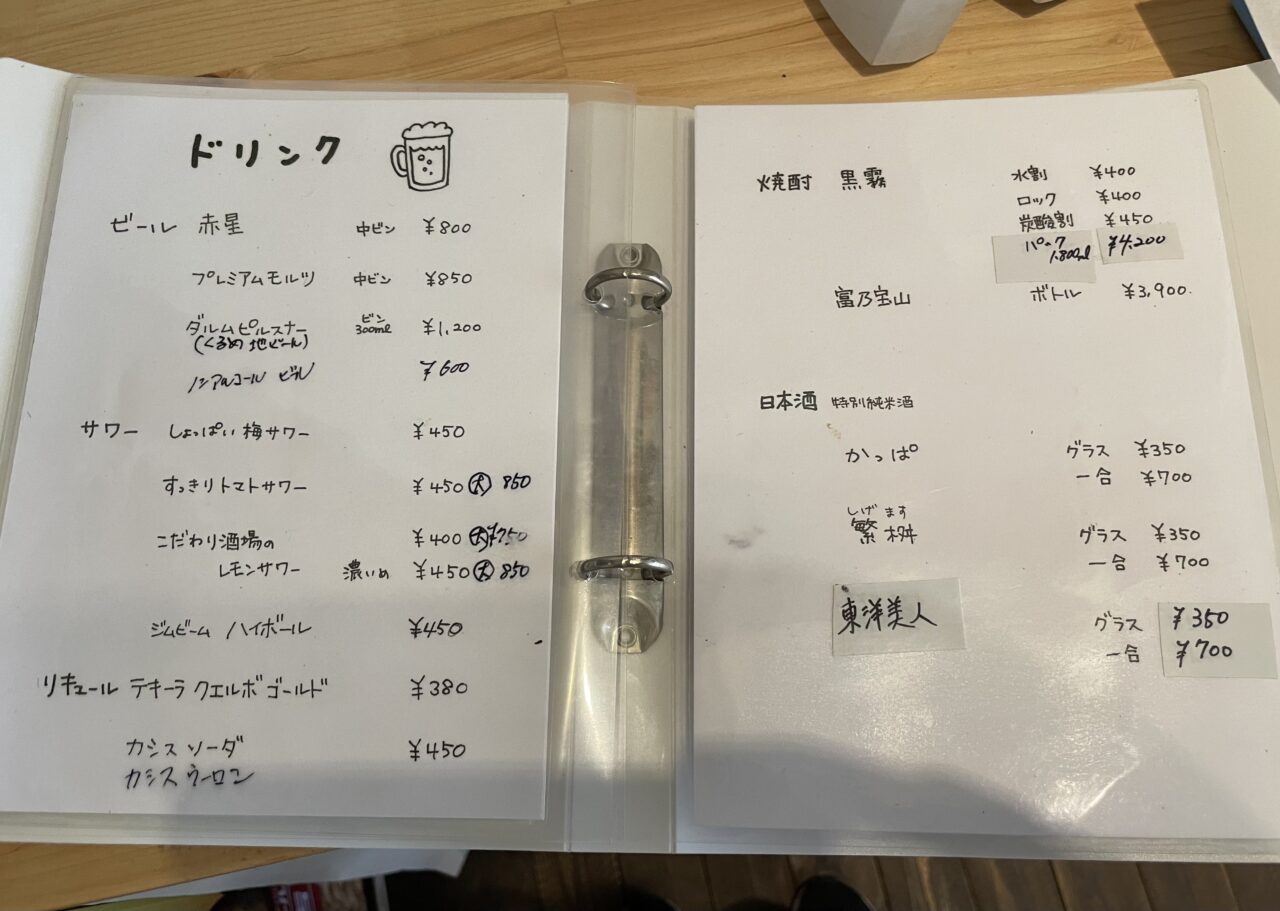 ドリンク
ビール 赤星 中ビン ¥800
プレミアムモルツ 中ビン ¥850
ダルムピルスナー ビン 300ml ¥1,200
(くるめ地ビール)
ノンアルコール ビール ¥600
サワー しょっぱい梅サワー ¥450
すっきりトマトサワー ¥450 大 850
こだわり酒場の ¥400 大 ¥750
レモンサワー 濃いめ ¥450 大 850
ジムビーム ハイボール ¥450
リキュール テキーラ クエルボ ゴールド ¥380
カシスソーダ ¥450
カシスウーロン
焼酎 黒霧 水割 ¥400
ロック ¥400
炭酸割 ¥450
パック 1,800ml ¥4,200
富乃宝山 ボトル ¥3,900.
日本酒 特別純米酒
かっぱ グラス ¥350
一合 ¥700
しげ ます
繁桝 グラス ¥350
一合 ¥700
東洋美人 グラス ¥350
一合 ¥700